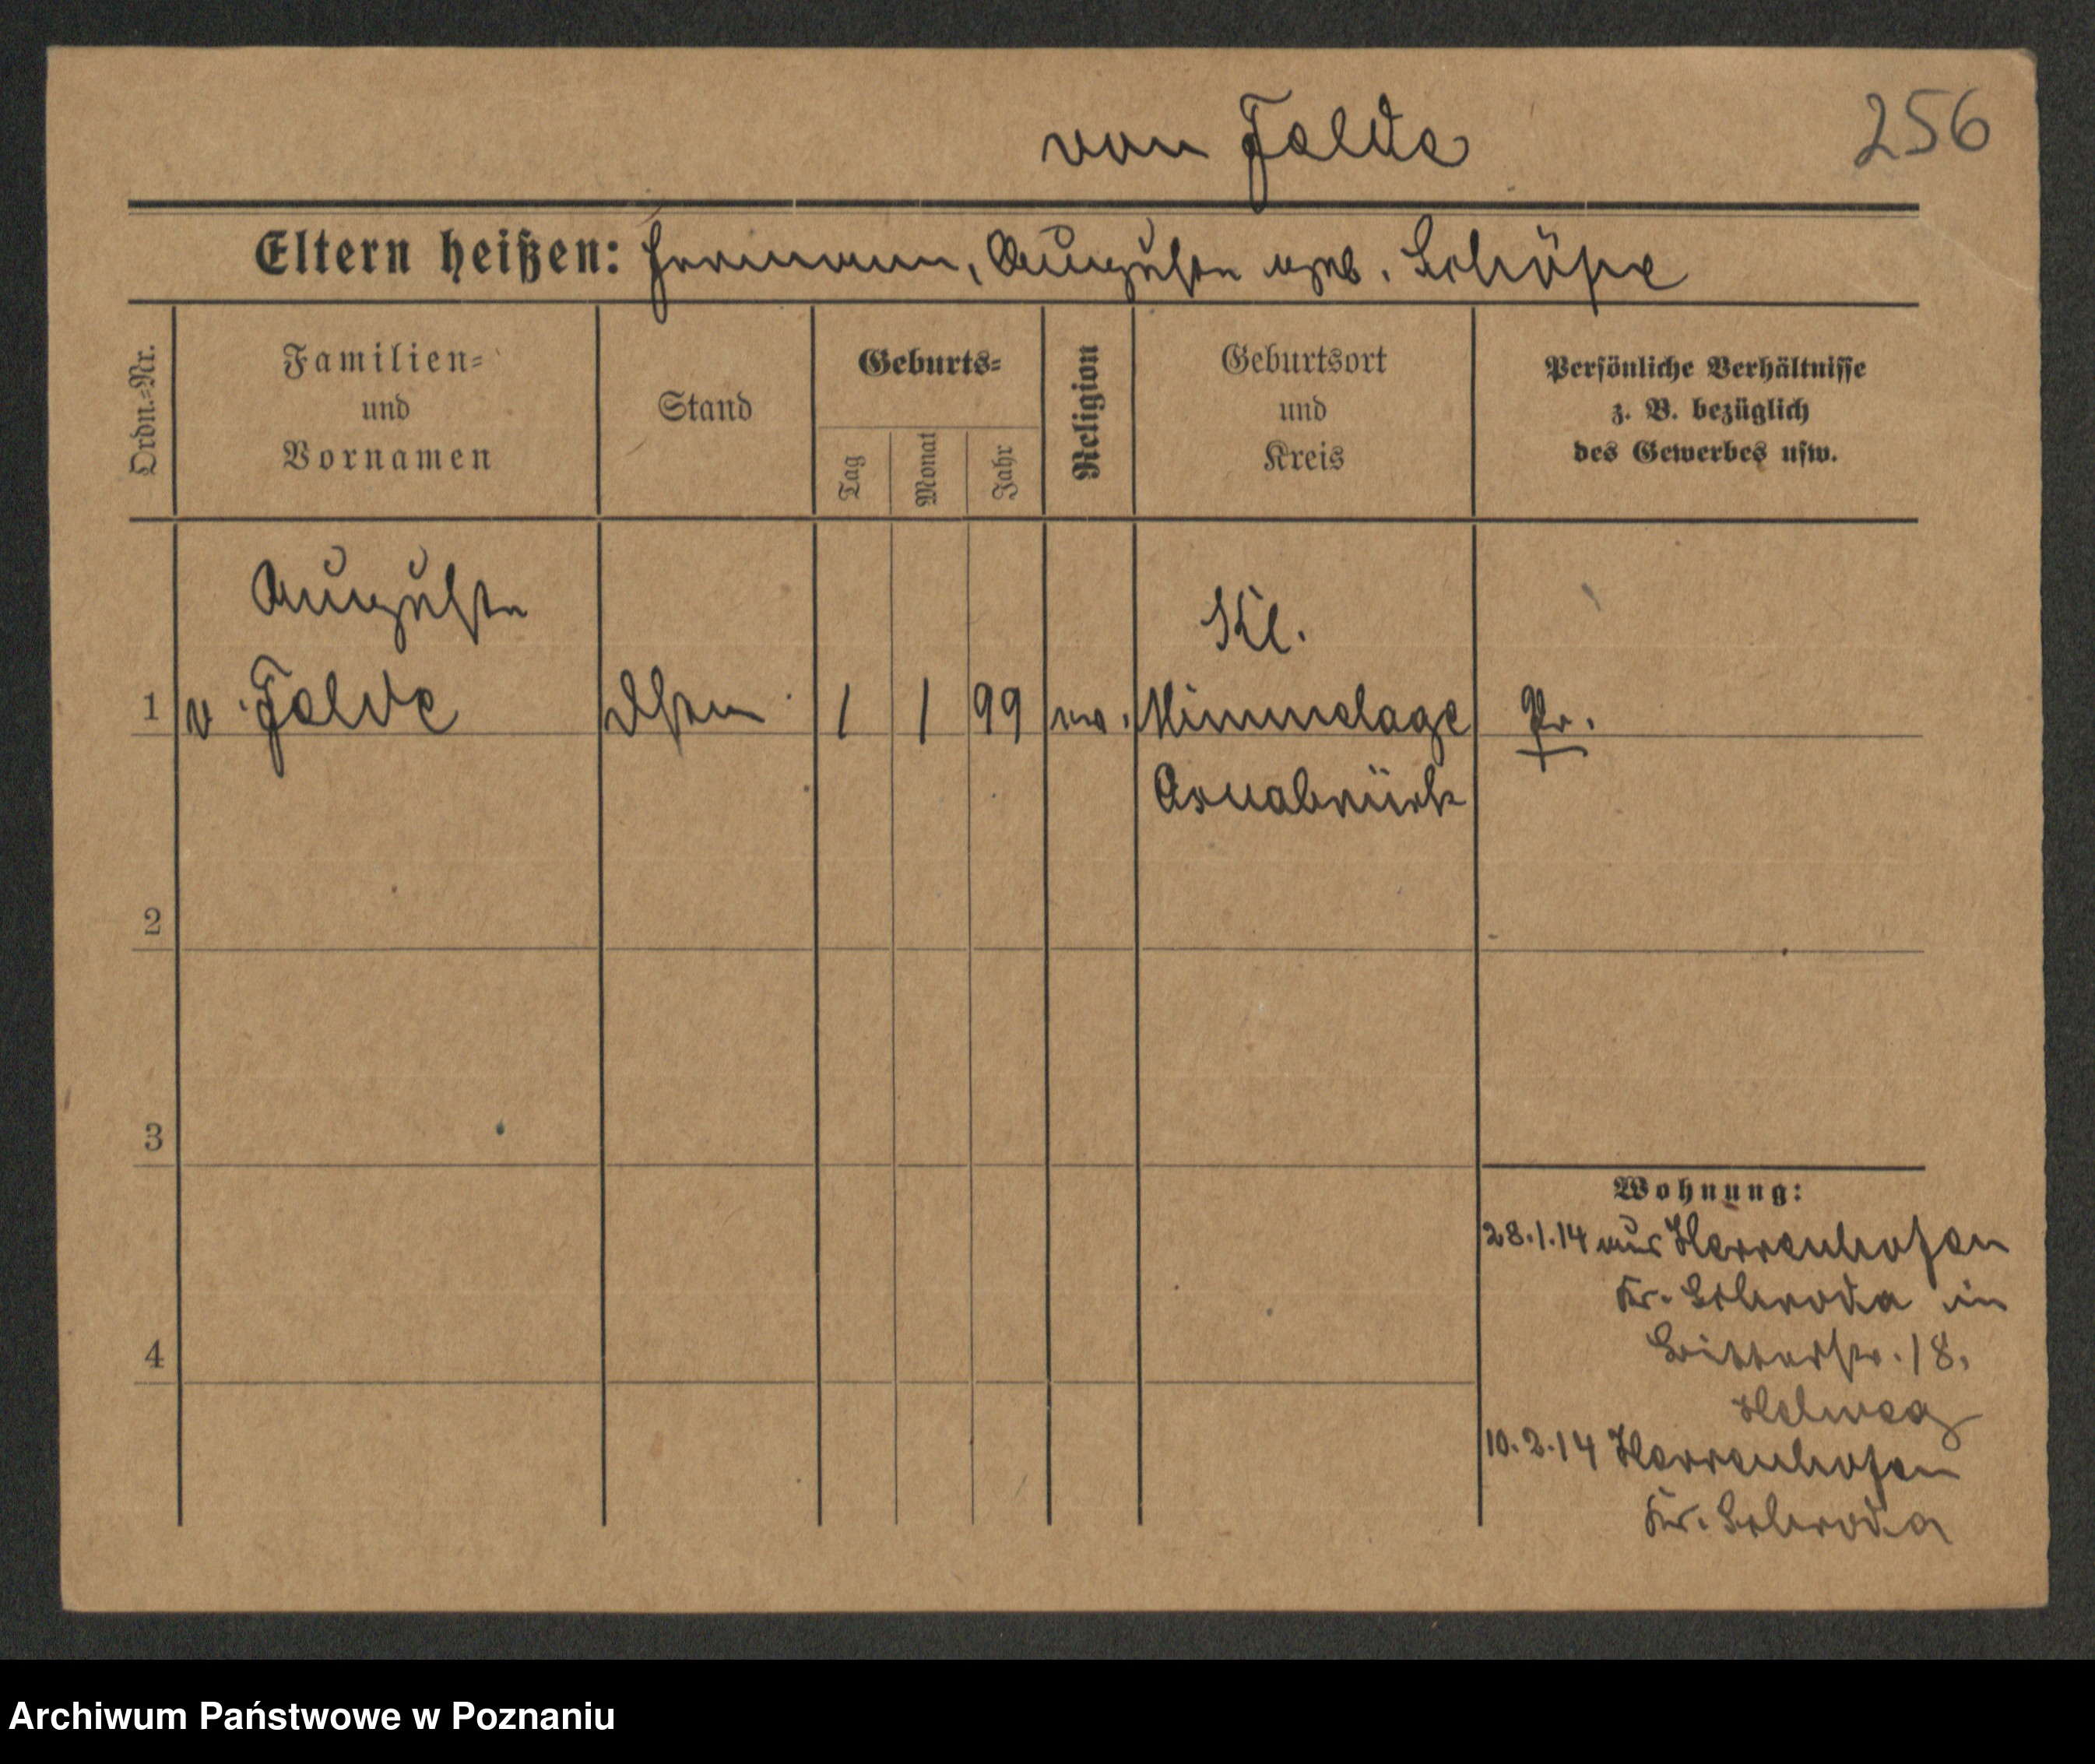 von Felde
256
Eltern heißen: Hermann, Auguste geb. Schöpe
Ordn.-Nr.
Familien-
und
Vornamen
Stand
Geburts-
Tag
Monat
Jahr
Religion
Geburtsort
und
Kreis
Persönliche Verhältnisse
z. B. bezüglich
des Gewerbes usw.
Auguste
Kl.
1 v. Felde 1 1 99 ev. Mimmelage Pr.
Osnabrück
2
3
4
Wohnung:
28.1.14 aus Herrenhofen
Kr. Schroda in
Ritterstr. 18.
Helweg
10.2.14 Herrenhofen
Kr. Schroda
Archiwum Państwowe w Poznaniu